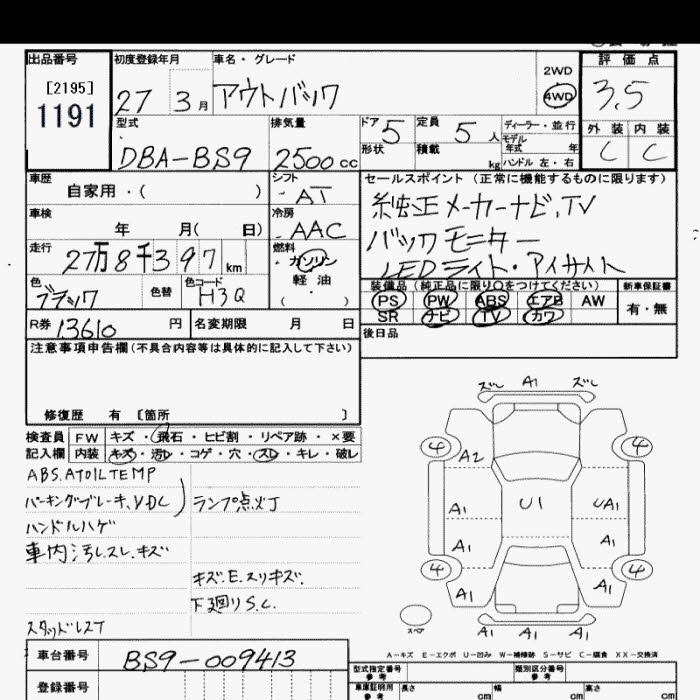 出品番号
[2195]
1191
初度登録年月
27 3月
車名・グレード
アウトバック
2WD
4WD
評価点
3.5
外装 内装
C C
型式
DBA-BS9
排気量
2500cc
ドア 5
形状
定員 5人
積載 kg
ディーラー・並行
モデル年式 年
ハンドル 左・右
車歴
自家用・( )
シフト
AT
車検
年 月( 日)
冷房
AAC
走行
27万8千397km
燃料
・ガソリン
軽油
・( )
色
ブラック
色替
色コード
H3Q
R券 13610 円
名変期限 月 日
セールスポイント(正常に機能するものに限ります)
純正メーカーナビ,TV
バックモニター
LEDライト・アイサイト
装備品(純正品に限り○をつけてください)
PS PW ABS エアB AW
SR ナビ TV カワ
新車保証書
有・無
後日品
注意事項申告欄(不具合内容等は具体的に記入して下さい)
修復歴 有 〔箇所 〕
検査員記入欄
FW キズ・飛石・ヒビ割・リペア跡・×要
内装 キズ・汚レ・コゲ・穴・スレ・キレ・破レ
ABS.ATOILTEMP
パーキングブレーキ.VDC
ランプ点灯
ハンドルハゲ
車内汚レスレ.キズ
キズ.E.スリキズ.
下廻りS.C.
スタッドレスT
ズレ A1 ズレ
4 4
A2
A1 U1 UA1
A1 A1
4 4
A1 A1
スペア
A1 A1 A1
A-キズ E-エクボ U-凹み W-補修跡 S-サビ C-腐食 XX-交換済
車台番号
BS9-009413
登録番号
型式指定番号
参考
類別区分番号
参考
車庫証明用
参考
長さ cm
幅 cm
高さ cm